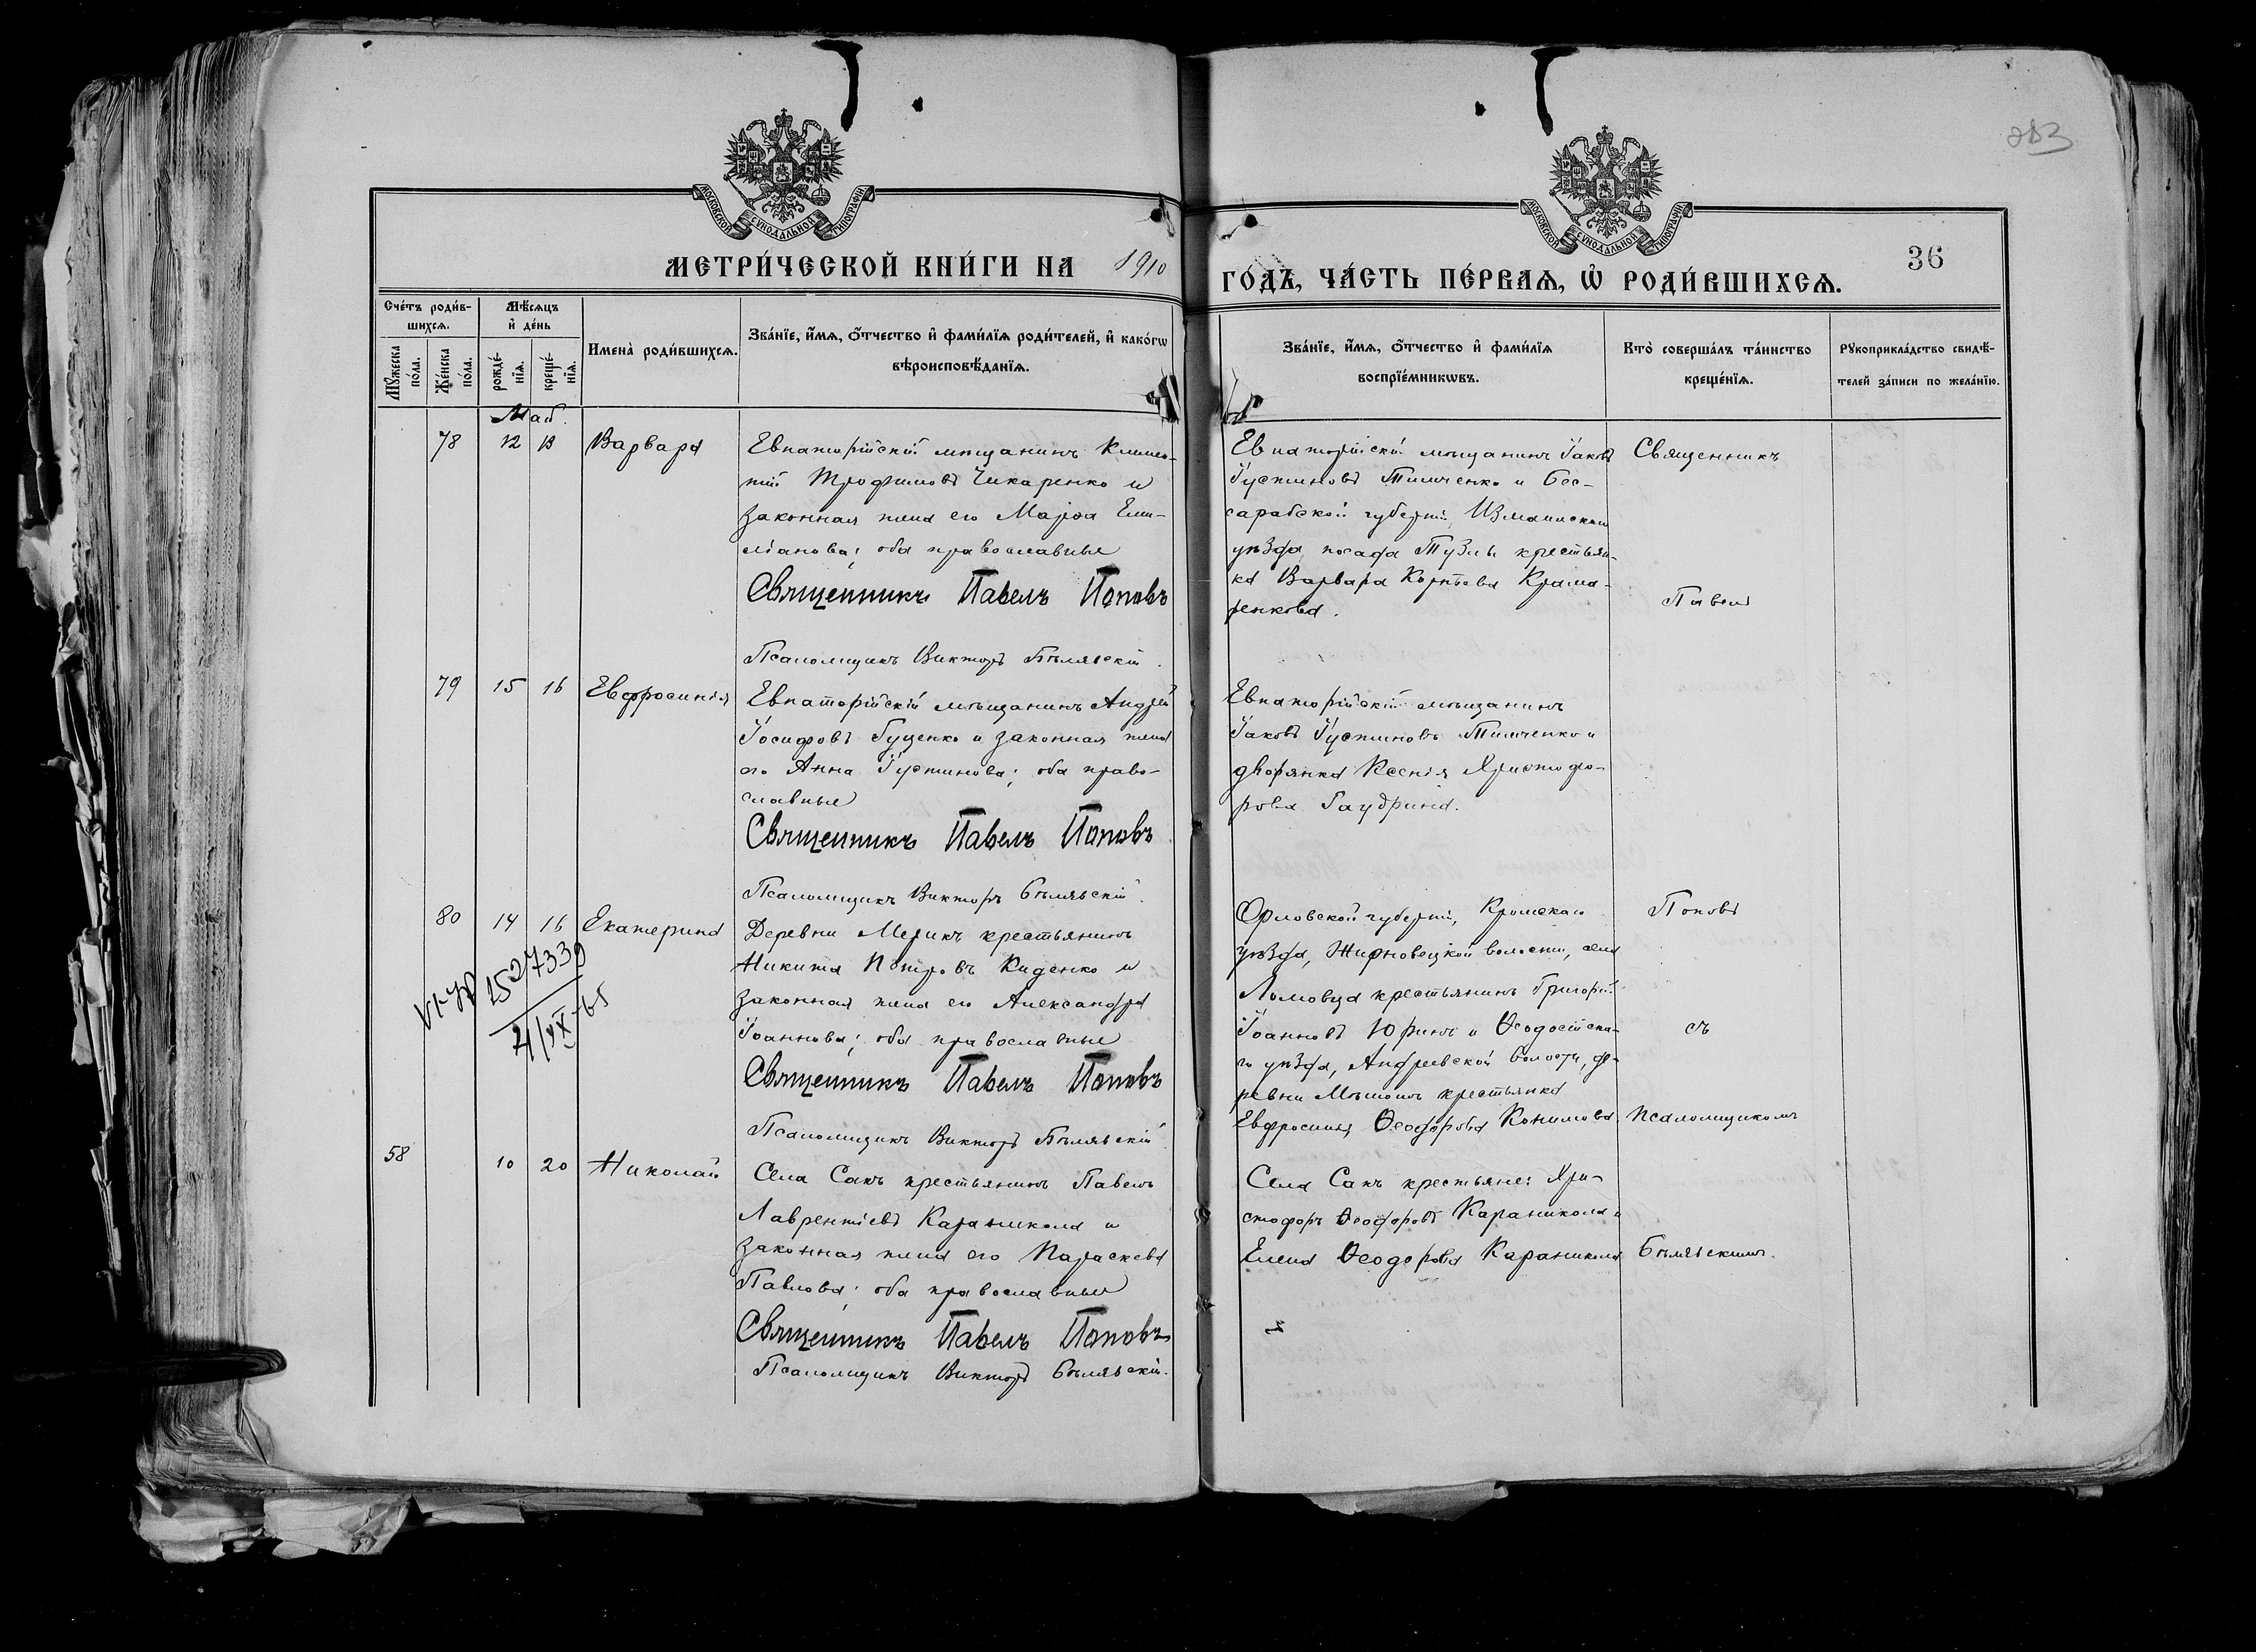 283
МОСКОВСКОЙ СѴНОДАЛЬНОЙ ТИПОГРАФІИ
МОСКОВСКОЙ СѴНОДАЛЬНОЙ ТИПОГРАФІИ
МЕТРИ́ЧЕСКОЙ КНИ́ГИ НА 1910
ГО́ДЪ, ЧА́СТЬ ПЕ́РВАѦ, Ѡ҆ РОДИ́ВШИХСѦ.
36
Сче́тъ роди́в-
шихсѧ.
Мꙋ́жеска по́ла.
Же́нска по́ла.
Мѣ́сѧцъ
и҆ де́нь
рожде́-
нїѧ.
креще́-
нїѧ.
И҆мена̀ роди́вшихсѧ.
Зва́нїе, и҆́мѧ, ѻ҆́тчество и҆ фами́лїѧ роди́телей, и҆ како́гѡ
вѣроисповѣ́данїѧ.
Зва́нїе, и҆́мѧ, ѻ҆́тчество и҆ фами́лїѧ
воспрїе́мникѡвъ.
Кто̀ соверша́лъ та́инство
креще́нїѧ.
Рꙋкоприкла́дство свидѣ́-
телей за́писи по жела́нїю.
Май.
78 12 13 Варвара
Евпаторійскій мѣщанинъ Климен-
тій Трофимовъ Чикаренко и
законная жена его Марѳа Еми-
ліанова; оба православные
Священникъ Павелъ Поповъ
Псаломщикъ Викторъ Бѣлявскій.
Евпаторійскій мѣщанинъ Іаковъ
Іустиновъ Тимченко и Бес-
сарабской губерніи, Измаильскаго
уѣзда, посада Тузлы крестьян-
ка Варвара Корнѣева Крама-
ренкова.
Священникъ
Павелъ
79 15 16 Евфросинія
Евпаторійскій мѣщанинъ Андрей
Іосифовъ Гуценко и законная жена
его Анна Іустинова; оба право-
славные
Священникъ Павелъ Поповъ
Псаломщикъ Викторъ Бѣлявскій.
Евпаторійскій мѣщанинъ
Іаковъ Іустиновъ Тимченко и
дворянка Ксенія Христофо-
рова Гаудрина.
80 14 16 Екатерина
1527339
Деревни Мерикъ крестьянинъ
Никита Петровъ Киденко и
законная жена его Александра
Іоаннова; оба православные
Священникъ Павелъ Поповъ
Псаломщикъ Викторъ Бѣлявскій.
Орловской губерніи, Кромскаго
уѣзда, Жирновецкой волости, села
Ломовца крестьянинъ Григорій
Іоанновъ Юринъ и Ѳеодосійска-
го уѣзда, Андреевской волости, де-
ревни крестьянка
Евфросинія Ѳеодорова
Поповъ
съ
псаломщикомъ
58 10 20 Николай
Села Сакъ крестьянинъ Павелъ
Лаврентіевъ Караникола и
законная жена его Параскева
Павлова; оба православные
Священникъ Павелъ Поповъ
Псаломщикъ Викторъ Бѣлявскій.
Села Сакъ крестьяне: Хри-
стофоръ Ѳеодоровъ Караникола и
Елена Ѳеодорова Караникола
Бѣлявскимъ.